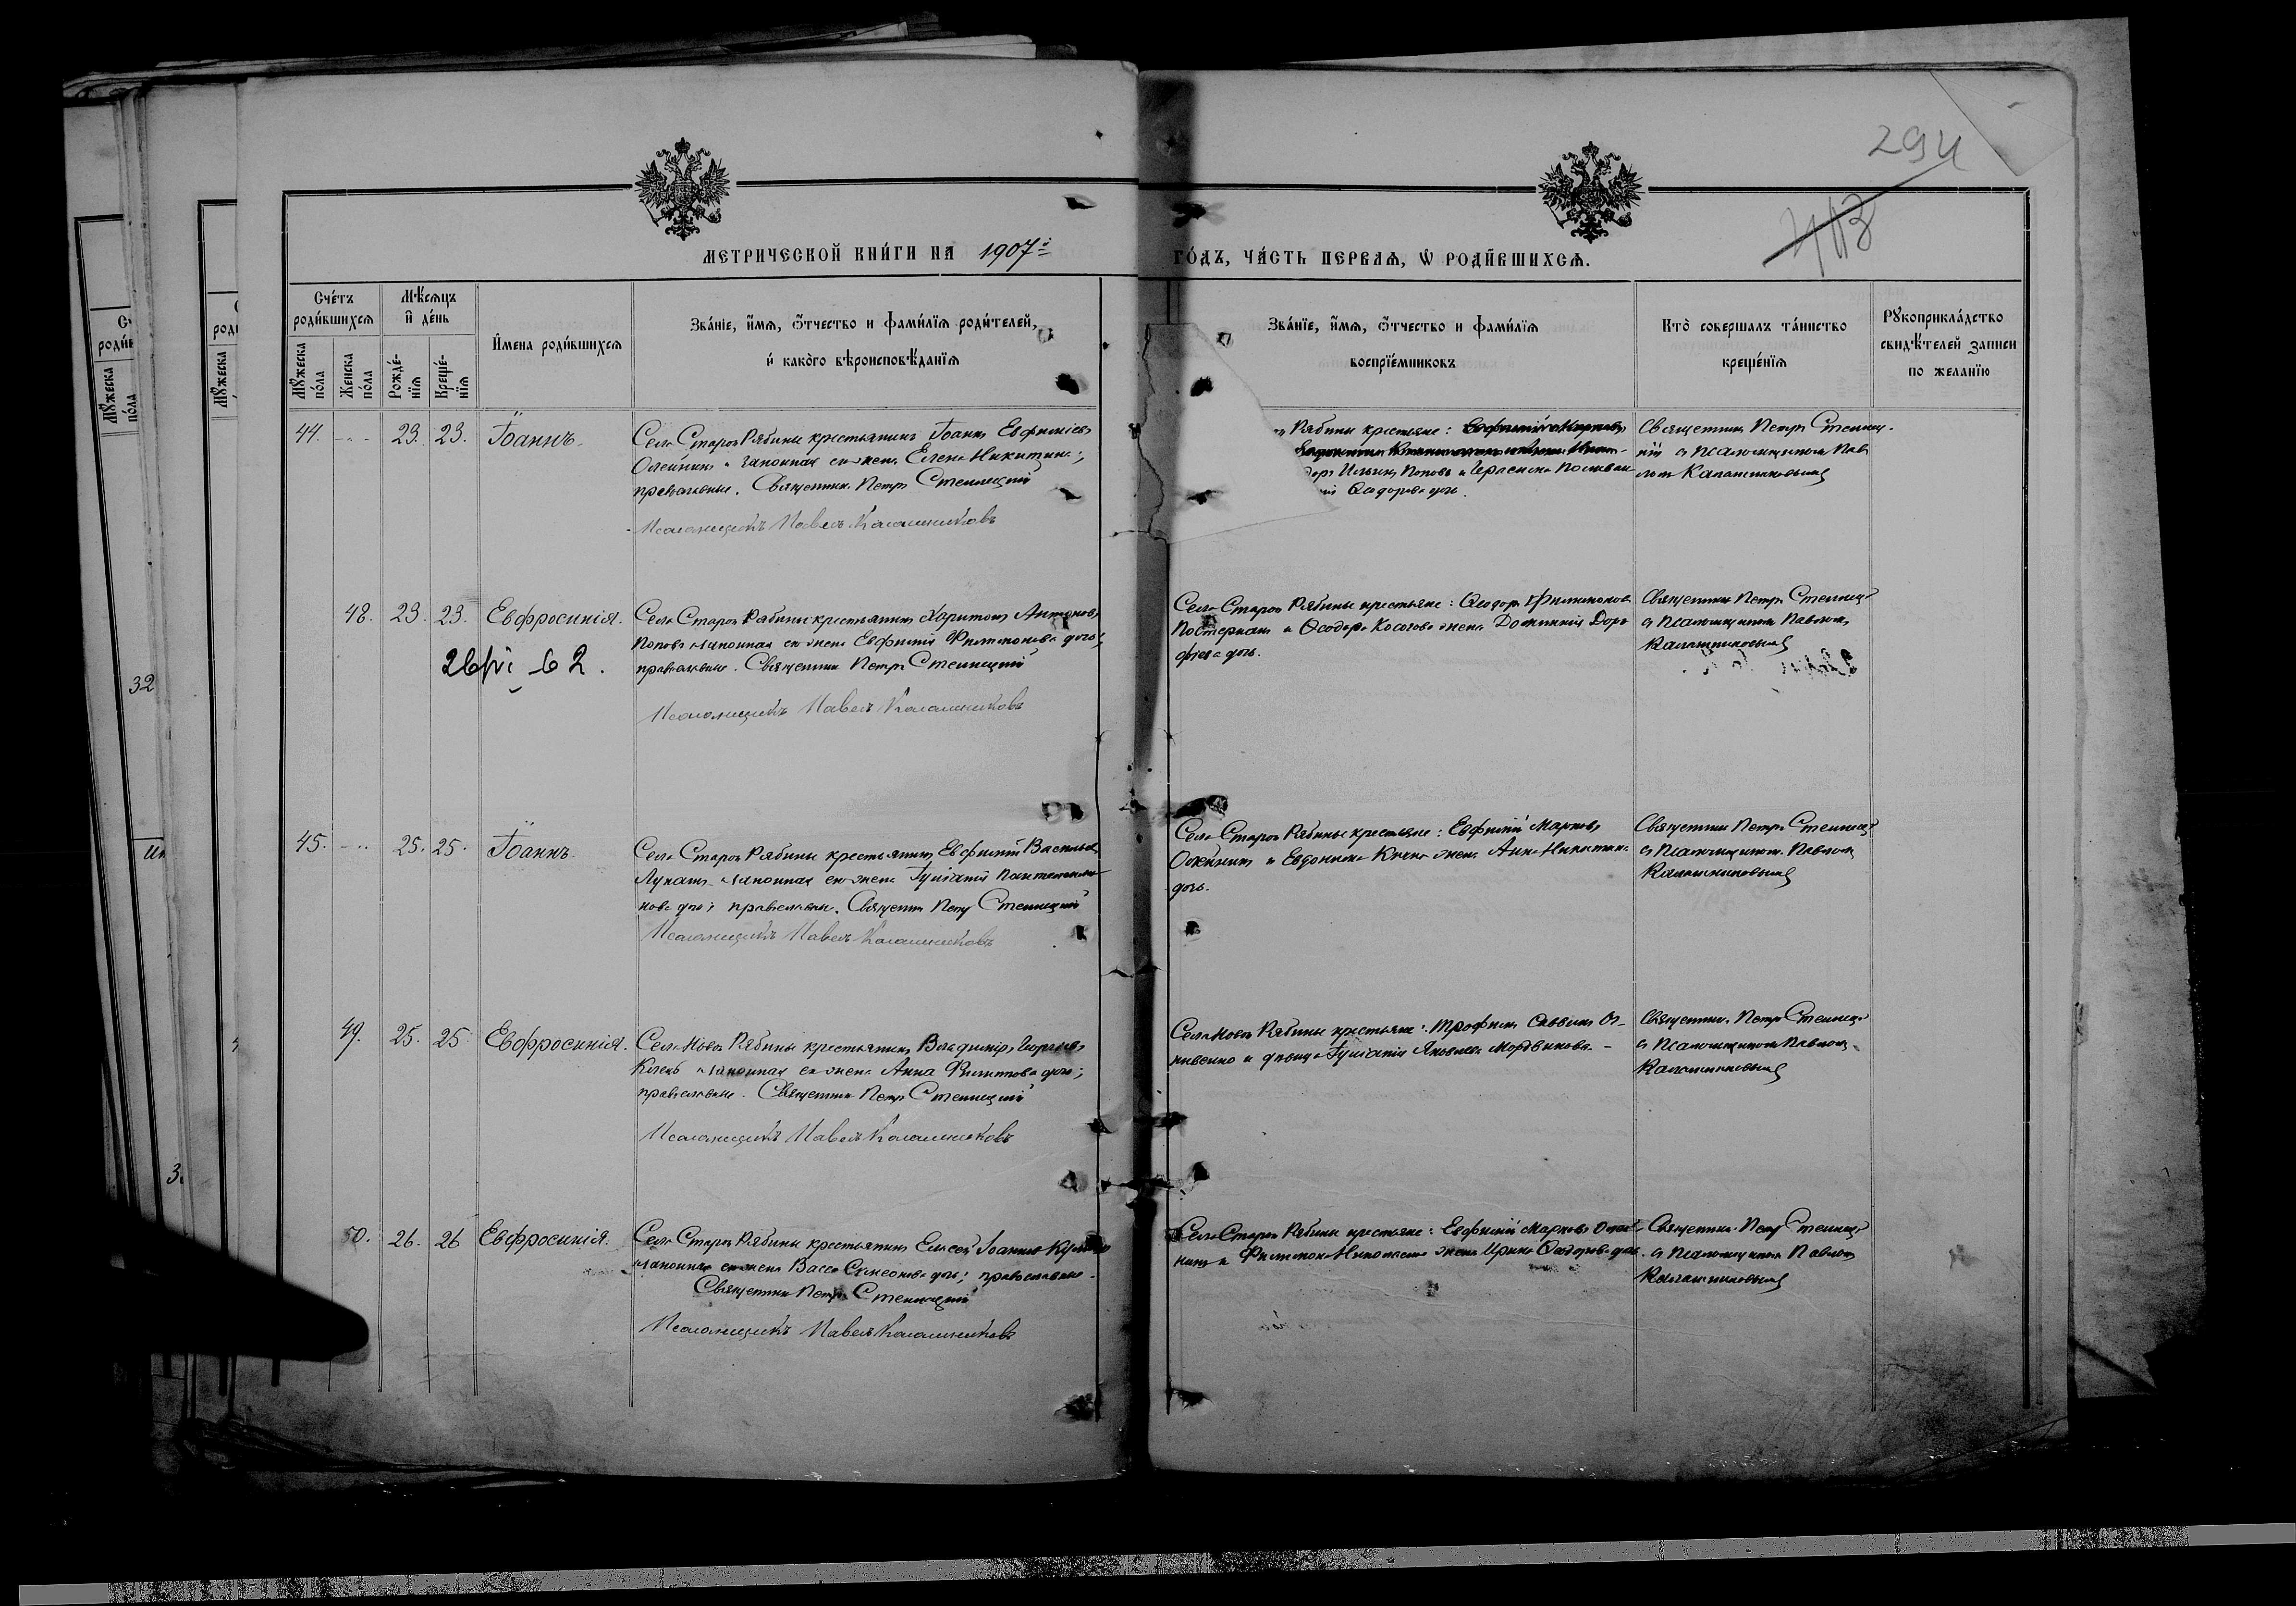 294
413
МЕТРИЧЕСКОЙ КНИ́ГИ НА 1907й ГО́ДЪ, ЧА́СТЬ ПЕРВАѦ, Ѡ РОДИ́ВШИХСѦ.
Сче́тъ роди́вшихсѧ
Мѣ́сѧцъ и҆ де́нь
И҆мена роди́вшихсѧ
Зва́нїе, и҆́мѧ, ѻ҆́тчество и фами́лїѧ роди́телей,
и҆ како́гѡ вѣроисповѣ́данїѧ
Зва́нїе, и҆́мѧ, ѻ҆́тчество и фами́лїѧ
воспрїе́мниковъ
Кто̀ совершалъ та́инство
креще́нїѧ
Рꙋкоприкла́дство
свидѣ́телей записи
по жела́нїю
Мꙋ́жеска по́ла
Же́нска по́ла
Рожде́-нїѧ
Креще́-нїѧ
44. - - - 23. 23. Іоаннъ.
Села Старой Рябины крестьянинъ Іоаннъ Евфиміевъ
Олейникъ и законная его жена Елена Никитина;
православные. Священникъ Петръ Стеллецкій
Псаломщикъ Павелъ Калашниковъ
Рябины крестьяне:
Ильинъ Поповъ и
Ѳеодорова дочь.
Священникъ Петръ Стеллец-
кій съ Псаломщикомъ Пав
ломъ Калашниковымъ
48. 23. 23. Евфросинія.
26/VI 62.
Села Старой Рябины крестьянинъ Харитонъ Антоновъ
Поповъ и законная его жена Евфимія Филимонова дочь;
православные. Священникъ Петръ Стеллецкій
Псаломщикъ Павелъ Калашниковъ
Села Старой Рябины крестьяне: Ѳеодоръ Филимоновъ
и Ѳеодора Косогова жена Домникія Доро
феева дочь.
Священникъ Петръ Стеллец.
съ Псаломщикомъ Павломъ
Калашниковымъ
45. - - - 25. 25. Іоаннъ
Села Старой Рябины крестьянинъ Евфимій Васильевъ
Лукашъ и законная его жена Іуліанія Пантелеимо-
нова дочь; православные. Священникъ Петръ Стеллецкій
Псаломщикъ Павелъ Калашниковъ
Села Старой Рябины крестьяне: Евфимій Марковъ
Олейникъ и Евдокима жена Анна Никитина
дочь.
Священникъ Петръ Стеллец.
съ Псаломщикомъ Павломъ
Калашниковымъ
49. 25. 25. Евфросинія.
Села Новой Рябины крестьянинъ Владиміръ Георгіевъ
и законная его жена Анна Филиппова дочь;
православные. Священникъ Петръ Стеллецкій
Псаломщикъ Павелъ Калашниковъ
Села Новой Рябины крестьяне: Трофимъ Саввинъ Ог-
ниенко и дѣвица Іуліанія Яковлева Мордвинова.
Священникъ Петръ Стеллец.
съ Псаломщикомъ Павломъ
Калашниковымъ
50. 26. 26 Евфросинія.
Села Старой Рябины крестьянинъ Елисей Іоанновъ
и законная его жена Васса Симеонова дочь; православные.
Священникъ Петръ Стеллецкій
Псаломщикъ Павелъ Калашниковъ
Села Старой Рябины крестьяне: Евфимій Марковъ Олей-
никъ и Филимона жена Ирина Ѳеодорова дочь.
Священникъ Петръ Стеллец.
съ Псаломщикомъ Павломъ
Калашниковымъ
32